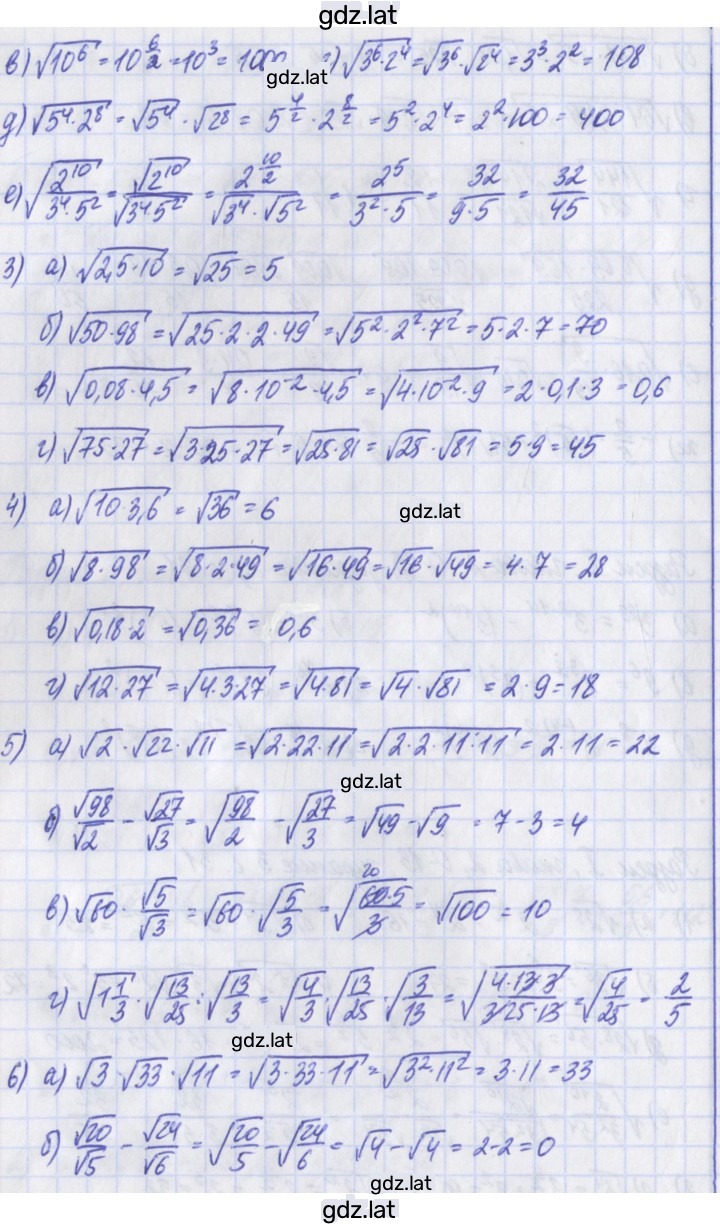 gdz.lat
в) √(10⁶) = 10^(6/2) = 10³ = 1000 г) √(3⁶·2⁴) = √3⁶·√2⁴ = 3³·2² = 108
gdz.lat
д) √(5⁴·2⁸) = √5⁴·√2⁸ = 5^(4/2)·2^(8/2) = 5²·2⁴ = 2²·100 = 400
е) √(2¹⁰/(3⁴·5²)) = √(2¹⁰)/√(3⁴·5²) = 2^(10/2)/(√3⁴·√5²) = 2⁵/(3²·5) = 32/(9·5) = 32/45
3) а) √(2,5·10) = √25 = 5
б) √(50·98) = √(25·2·2·49) = √(5²·2²·7²) = 5·2·7 = 70
в) √(0,08·4,5) = √(8·10⁻²·4,5) = √(4·10⁻²·9) = 2·0,1·3 = 0,6
г) √(75·27) = √(3·25·27) = √(25·81) = √25·√81 = 5·9 = 45
4) а) √(10·3,6) = √36 = 6
gdz.lat
б) √(8·98) = √(8·2·49) = √(16·49) = √16·√49 = 4·7 = 28
в) √(0,18·2) = √(0,36) = 0,6
г) √(12·27) = √(4·3·27) = √(4·81) = √4·√81 = 2·9 = 18
5) а) √2·√22·√11 = √(2·22·11) = √(2·2·11·11) = 2·11 = 22
gdz.lat
б) √98/√2 - √27/√3 = √(98/2) - √(27/3) = √49 - √9 = 7 - 3 = 4
в) √60·√5/√3 = √60·√(5/3) = √(60·5/3) 20 = √100 = 10
г) √(1 1/3)·√(13/25) : √(13/3) = √(4/3)·√(13/25)·√(3/13) = √(4·13·3/(3·25·13)) = √(4/25) = 2/5
gdz.lat
6) а) √3·√33·√11 = √(3·33·11) = √(3²·11²) = 3·11 = 33
б) √20/√5 - √24/√6 = √(20/5) - √(24/6) = √4 - √4 = 2-2 = 0
gdz.lat
gdz.lat